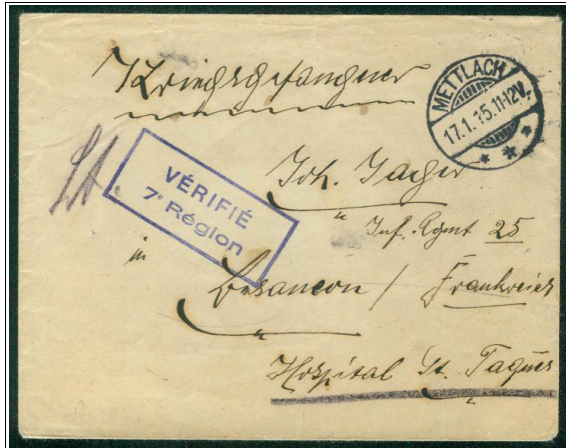 Kriegsgefangner
METTLACH
17.1.15.11-12V.
VÉRIFIÉ
7e Région
Joh. Jager
Inf. Rgmt 25
in
Besancon / Frankreich
Hospital St. Jaques